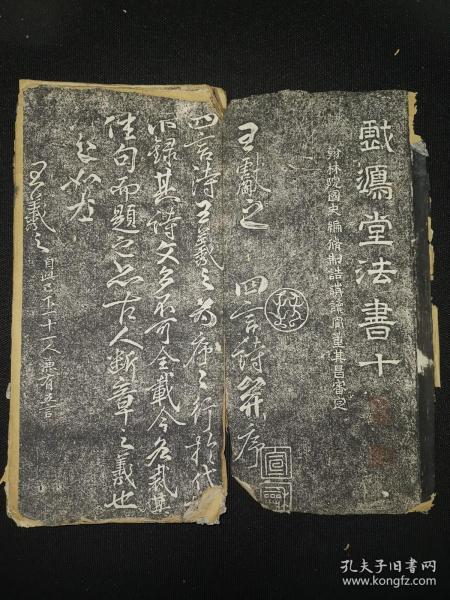 戲鴻堂法書十
翰林院國史編脩制誥講讀官董其昌審定
王獻之四言詩并序
四言詩王羲之為序〻行於代
不録其詩文多不可全載今各裁其
佳句而題之亦古人斷章之義也
如左
王羲之自此已下一十一人悉有五言
孔夫子旧书网
www.kongfz.com